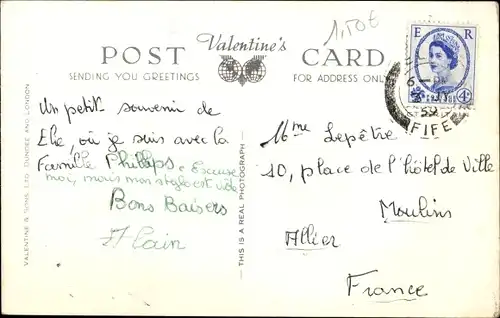 1,50€
POST Valentine's CARD
SENDING YOU GREETINGS
FOR ADDRESS ONLY
E R
4D
FIFE
Un petit souvenir de
Elie, où je suis avec la
Famille Phillips. Excuse
moi, mais mon stylo est vide
Bons Baisers
Alain
Mme Lepêtre
10, place de l'hôtel de Ville
Moulins
Allier
France
VALENTINE & SONS, LTD., DUNDEE AND LONDON
THIS IS A REAL PHOTOGRAPH